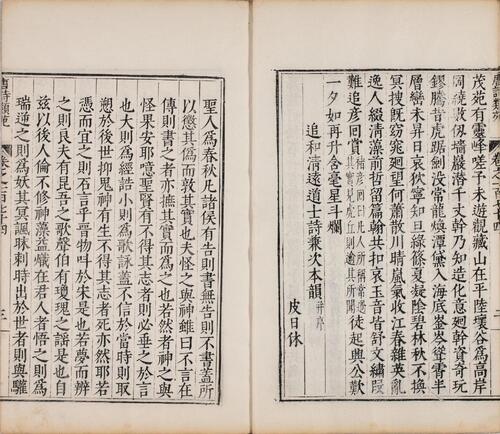 茂苑有靈峰嗟予未遊觀藏山在平陸壞谷為高岸
岡繞數仞墻巖潛千丈幹乃知造化意迴斡資奇玩
鏐騰昔虎踞劍沒常龍煥潭黛入海底崟岑聳霄半
層巒未昇日哀狖寧知旦綠篠夏凝陰碧林秋不換
冥搜既窈窕迴望何蕭散川晴嵐氣收江春雜英亂
逸人綴清藻前哲留篇翰共扣哀玉音皆舒文繡段
難追彥回賞褚彥回曰凡人所稱常過其實見虎丘則逾其所聞徒起興公歎
一夕如再升含毫星斗爛
追和清遠道士詩兼次本韻并序
皮日休
唐詩類苑 卷之一百七十四 三
聖人為春秋凡諸侯有告則書無告則不書蓋所
以懲其偽而敦其實也夫怪之與神雖曰不言在
傳則書之者亦摭其實而為之也若然者神之與
怪果安耶噫聖賢有不得其志者則必垂之於言
也大則為經誥小則為歌詠蓋不信於當時則取
愬於後世抑鬼神有生不得其志者死亦然耶若
憑而宜之則石言乎晉物叫於宋是也若夢而辨
之則良夫有昆吾之歌聲伯有瓊瑰之謠是也自
茲以後人倫不修神藻益熾在君人者悟之則為
瑞逆之則為妖其冥諷昧刺時出於世者則與騷